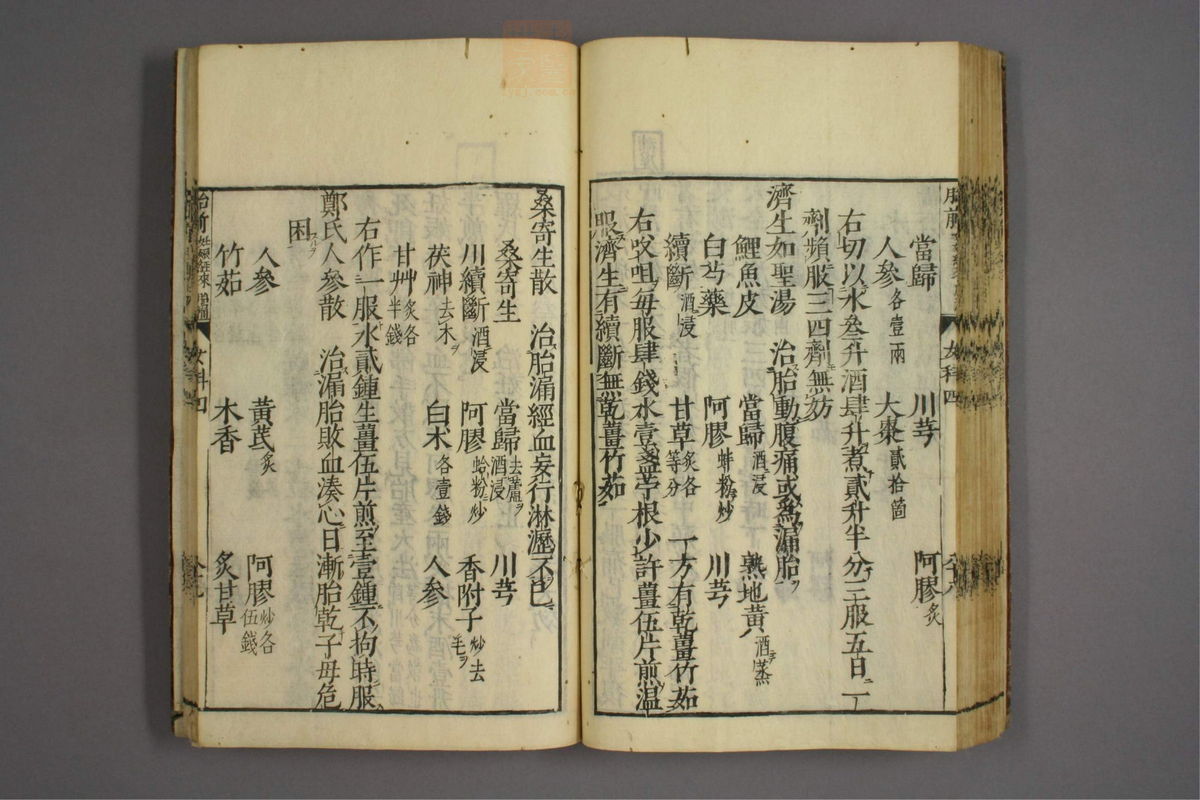 當歸　川芎　阿膠炙
人參各壹兩　大棗貳拾箇
右切以水叄升酒肆升煮貳升半分三服五日一
劑頻服三四劑無妨
濟生如聖湯　治胎動腹痛或為漏胎
鯉魚皮　當歸酒浸　熟地黃酒蒸
白芍藥　阿膠蚌粉炒　川芎
續斷酒浸　甘草炙各等分　一方有乾薑竹茹
右㕮咀每服肆錢水壹盞苧根少許薑伍片煎溫
服濟生有續斷無乾薑竹茹
桑寄生散　治胎漏經血妄行淋瀝不已
桑寄生　當歸去蘆酒浸　川芎
川續斷酒浸　阿膠蛤粉炒　香附子炒去毛
茯神去木　白朮各壹錢　人參
甘艸炙各半錢
右作一服水貳鍾生薑伍片煎至壹鍾不拘時服
鄭氏人參散　治漏胎敗血湊心日漸胎乾子母危
困
人參　黃芪炙　阿膠炒各伍錢
竹茹　木香　炙甘草
胎前
女科四